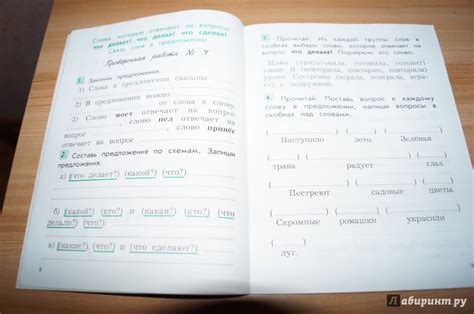 Слова, которые отвечают на вопросы
что делает? что делал? что сделает?
Связь слов в предложении.
Проверочная работа № 4
1. Закончи предложения.
1) Слова в предложении связаны
2) В предложении можно
от слова к слову.
3) Слово моет отвечает на вопрос
, слово пел отвечает на
вопрос , слово принёс
отвечает на вопрос
2. Составь предложения по схемам. Запиши
предложения.
а) (что делает?) (какой?) (что?).
б) (какой?) (кто?) и (какая?) (кто?) (что
делали?) (что?).
в) (какие?) (что?) и (что сделают?).
8
3. Прочитай. Из каждой группы слов в
скобках выбери слово, которое отвечает на
вопрос что делала? Подчеркни это слово.
Мама (приготовила, готовила, готовит)
ужин. Я (повторила, повторяю, повторяла)
уроки. Сестрёнка (играла, поиграла, играет) с подружкой.
4. Прочитай. Поставь вопрос к каждому
слову в предложении, напиши вопросы в
скобках над словами.
Наступило лето. Зелёная
трава радует глаз.
Пестреют садовые цветы.
Скромные ромашки украсили
луг.
Лабиринт.ру